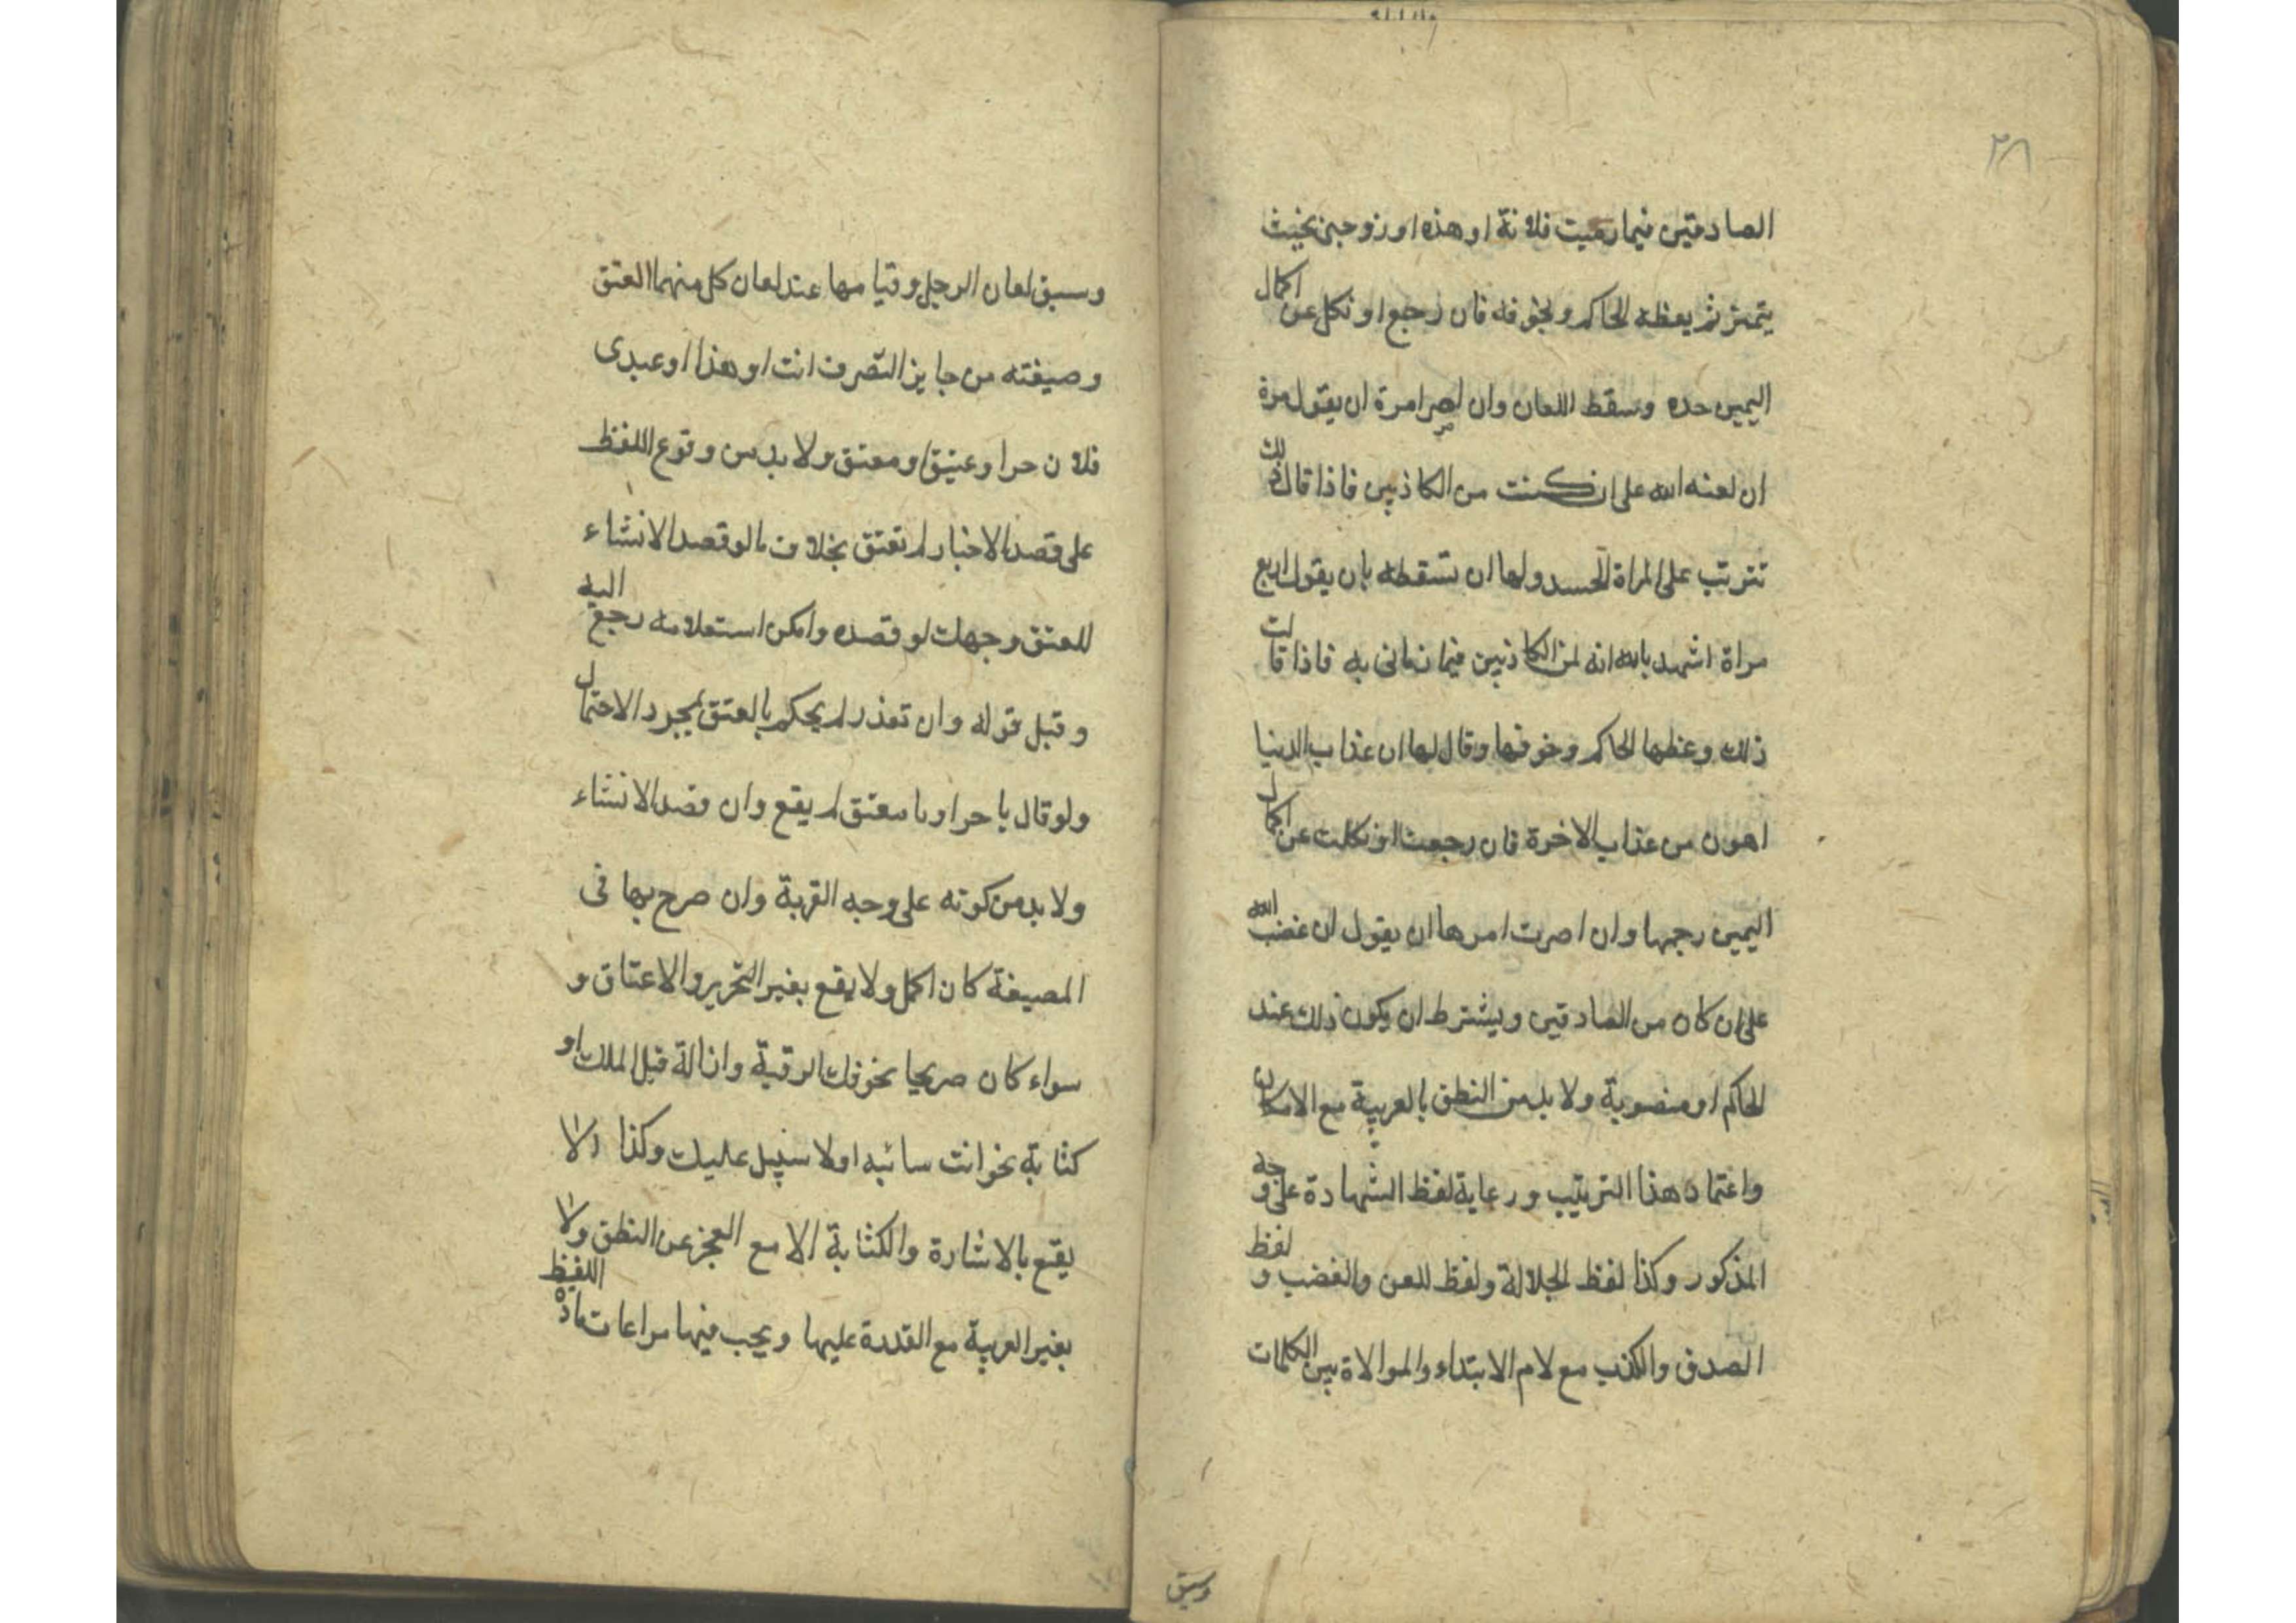 ٣٨
الصادقين فيما رميت فلانة او هذه او زوجتى بحيث
يتميز ثم يعظه الحاكم ويخوفه فان رجع او نكل عن اكمال
اليمين حده وسقط اللعان وان اصر امره ان يقول مرة
ان لعنه الله على ان كنت من الكاذبين فاذا قال ذلك
تترتب على المراة الحد ولها ان تسقطه بان يقول اربع
مراة اشهد بالله انه لمن الكاذبين فيما رمانى به فاذا قالت
ذلك وعظها الحاكم وخوفها وقال لها ان عذاب الدنيا
اهون من عذاب الاخرة فان رجعت او نكلت عن اكمال
اليمين رجمها وان اصرت امرها ان يقول ان غضب الله
على ان كان من الصادقين ويشترط ان يكون ذلك عند
الحاكم او منصوبة ولا بد من النطق بالعربية مع الامكان
واعتماد هذا الترتيب ورعاية لفظ الشهادة على وجه
المذكور وكذا لفظ الجلالة ولفظ للعن والغضب و لفظ
الصدق والكذب مع لام الابتداء والموالاة بين الكلمات
وسبق
وسبق لعان الرجل وقيامها عند لعان كل منهما العتق
وصيغته من جايز التصرف انت او هذا او عبدى
فلان حر او عتيق او معتق ولا بد من وقوع اللفظ
على قصد الاخبار لم تعتق بخلاف مالو قصد الانشاء
للعتق وجهلت لو قصده وامكن استعلامه رجع اليه
وقبل قوله وان تعذر لم يحكم بالعتق بمجرد الاحتمال
ولو قال يا حر او يا معتق لم يقع وان قصد الانشاء
ولا بد من كونه على وجه القربة وان صرح بها فى
المصيغة كان اكمل ولا يقع بغير التحرير والاعتاق و
سواء كان صريحا نحو فك الرقبة وازالة قيل الملك او
كتابة نحو انت سائبه او لا سبيل عليك وكذا لا
يقع بالاشارة والكتابة الا مع العجز عن النطق ولا
بغير العربية مع القدرة عليها ويجب فيها مراعات مادة اللفظ